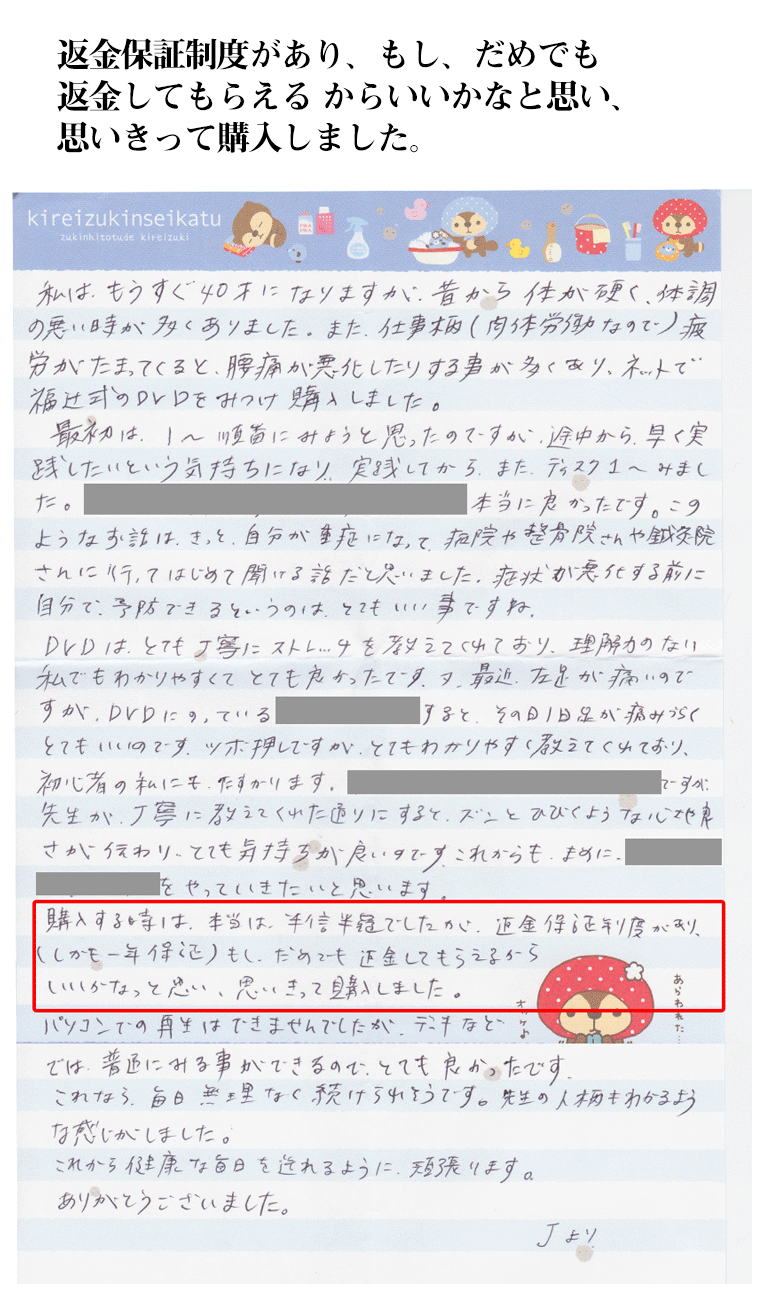 返金保証制度があり、もし、だめでも
返金してもらえる からいいかなと思い、
思いきって購入しました。
kireizukinseikatu
zukinhitotude kireizuki
私は、もうすぐ40才になりますが、昔から体が硬く、体調
の悪い時が多くありました。また、仕事柄(肉体労働なので)疲
労がたまってくると、腰痛が悪化したりする事が多くあり、ネットで
福辻式のDVDをみつけ購入しました。
最初は、1〜順番にみようと思ったのですが、途中から、早く実
践したいという気持ちになり、実践してから、また、ディスク1〜みまし
た。
本当に良かったです。この
ようなお話は、きっと、自分が重症になって、病院や整骨院さんや鍼灸院
さんに行ってはじめて聞ける話だと思いました。症状が悪化する前に
自分で、予防できるというのは、とてもいい事ですね。
DVDは、とても丁寧にストレッチを教えてくれており、理解力のない
私でもわかりやすくてとても良かったです。又、最近、左足が痛いので
すが、DVDにのっている
すると、その日1日足が痛みづらく
とてもいいのです。ツボ押しですが、とてもわかりやすく教えてくれており、
初心者の私にも、たすかります。
ですが
先生が、丁寧に教えてくれた通りにすると、ズンとひびくような心地良
さが伝わり、とても気持ちが良いのです。これからも、まめに、
をやっていきたいと思います。
購入する時は、本当は、半信半疑でしたが、返金保証制度があり、
(しかも一年保証)もし、だめでも返金してもらえるから
いいかなっと思い、思いきって購入しました。
あらわれた…
オカケよ
パソコンでの再生はできませんでしたが、デッキなど
では、普通にみる事ができるので、とても良かったです。
これなら、毎日無理なく続けられそうです。先生の人柄もわかるよう
な感じがしました。
これから健康な毎日を送れるように、頑張ります。
ありがとうございました。
Jより